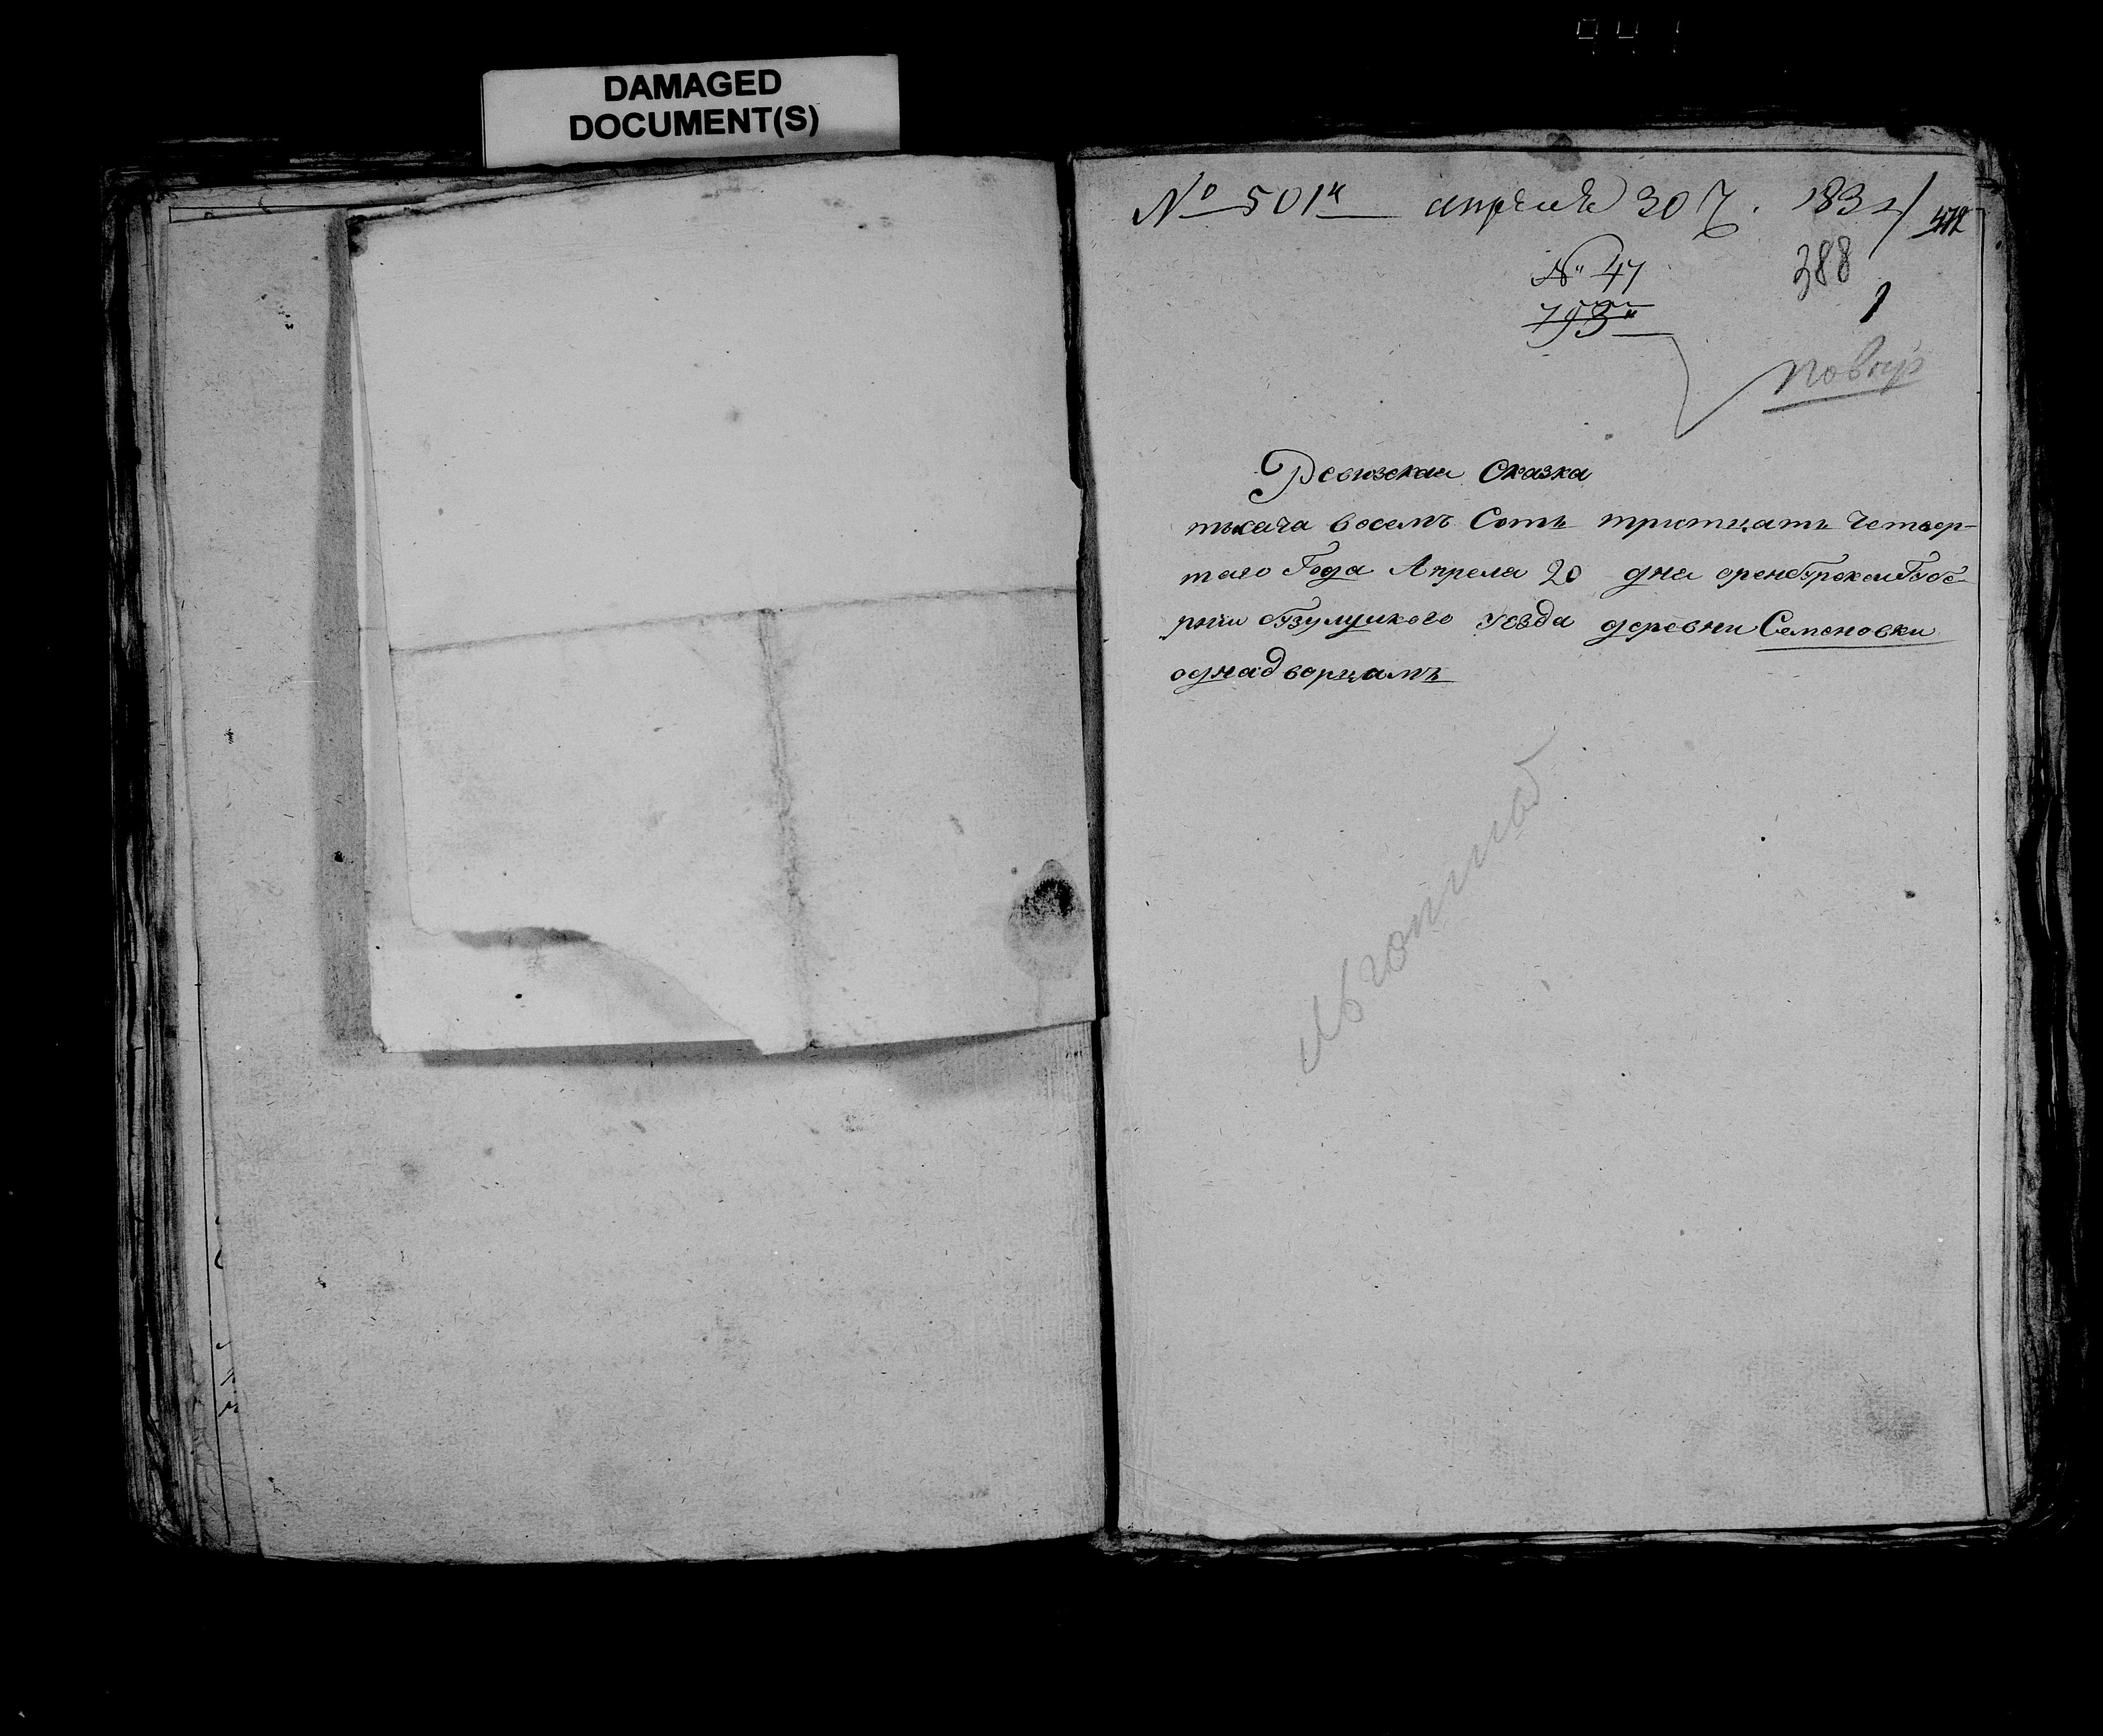 DAMAGED
DOCUMENT(S)
№ 501й апреля 30 ч. 1834
472
№ 47
388
793й
1
повер
Ревизская Сказка
тысяча восемъ Сотъ тритцать Четвер-
таго Года Апреля 20 дня оренбурской Губе-
рнии бузулуцкого уезда деревни Семеновки
однадворцамъ